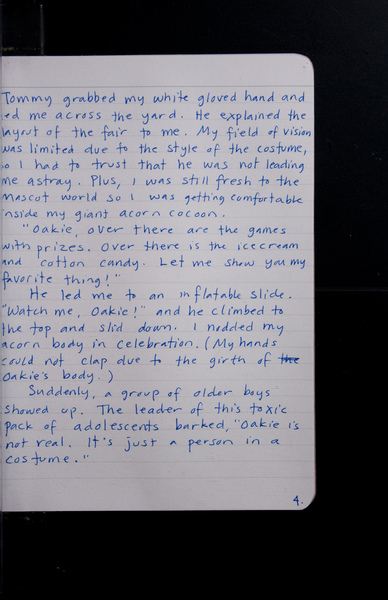 Tommy grabbed my white gloved hand and
led me across the yard. He explained the
layout of the fair to me. My field of vision
was limited due to the style of the costume,
so I had to trust that he was not leading
me astray. Plus, I was still fresh to the
mascot world so I was getting comfortable
inside my giant acorn cocoon.
"Oakie, over there are the games
with prizes. Over there is the icecream
and cotton candy. Let me show you my
favorite thing!"
He led me to an inflatable slide.
"Watch me, Oakie!" and he climbed to
the top and slid down. I nodded my
acorn body in celebration. (My hands
could not clap due to the girth of the
Oakie's body.)
Suddenly, a group of older boys
showed up. The leader of this toxic
pack of adolescents barked, "Oakie is
not real. It's just a person in a
costume."
4.